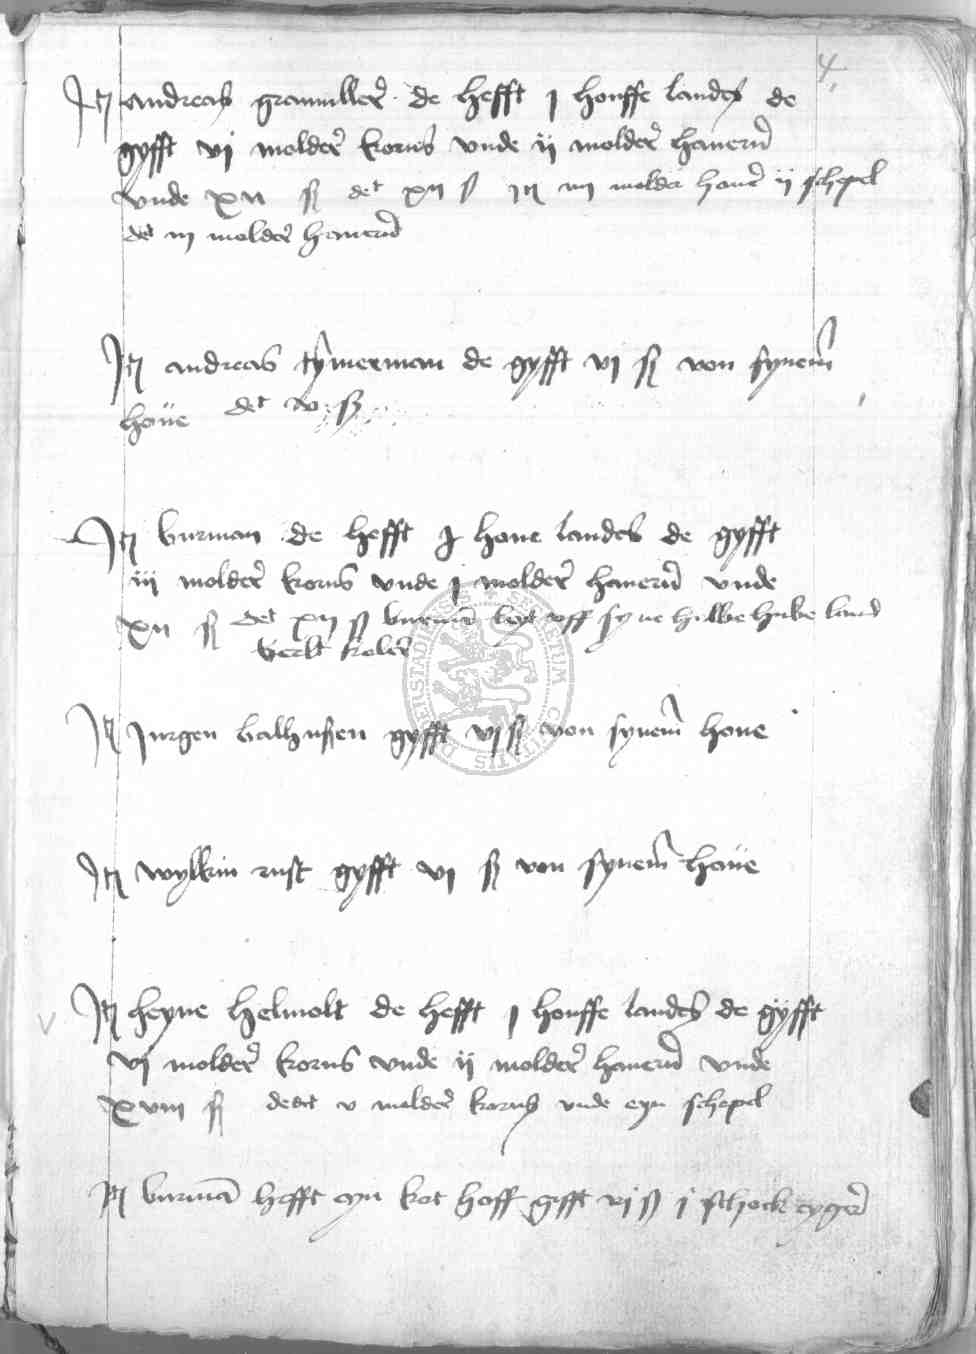 4
Itm andreas gramuller de hefft j houffe landes de
gyfft vj molder korns vnde ij molder hauern
vnde xvii ß det xvij ß Itm iiij molder hauer ij schepel
det iij molder hauern
Itm andreas tymerman de gyfft vj ß von synem
houe det iv ß
Itm burman de hefft j houe landes de gyfft
iij molder korns vnde j molder hauern vnde
xvii ß det xvij ß burman leyt vff syne halbe hube land
Bertolt koler
Itm Jurgen balhußen gyfft vj ß von synem houe
Itm wylkin rust gyfft vj ß von synem houe
Itm heyne helmolt de hefft j houffe landes de gyfft
vj molder korns vnde ij molder hauern vnde
xviij ß dedit v molder korns vnde eyn schepel
Itm burman hefft eyn kot hoff gyfft vj ß j schock eyger
SECRETUM CIVITATIS DUDERSTADIENSIS